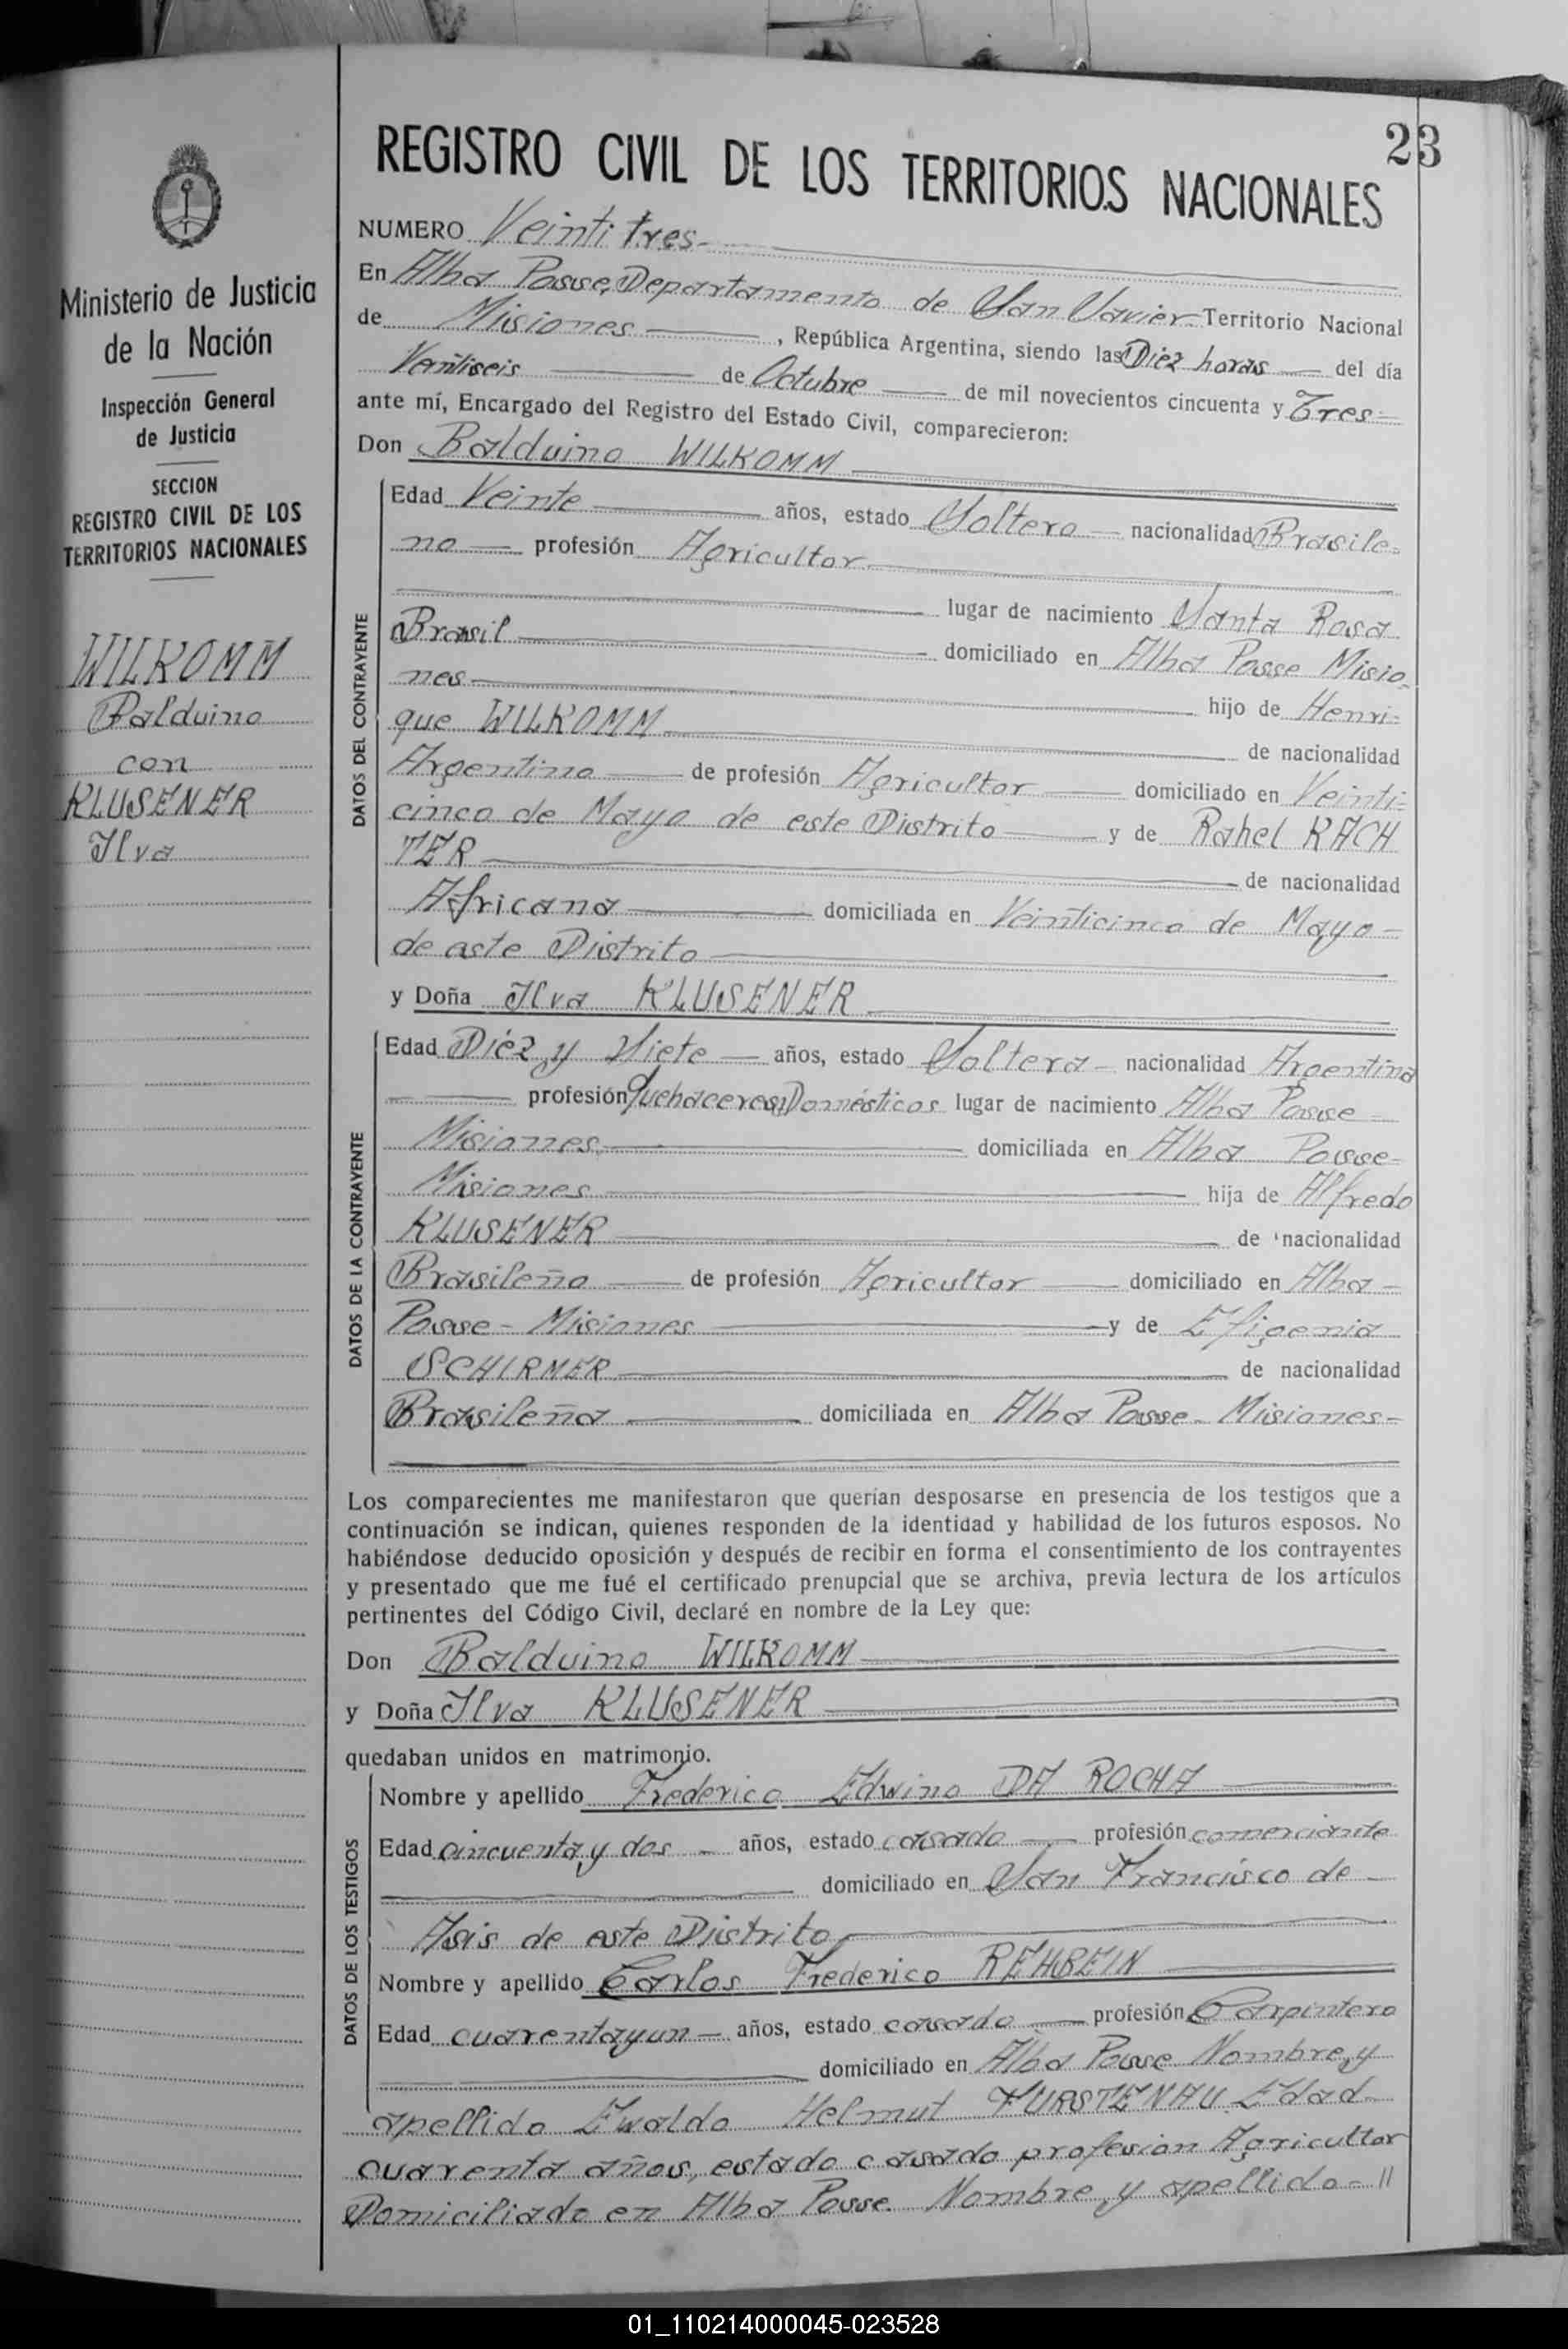 23
REGISTRO CIVIL DE LOS TERRITORIOS NACIONALES
Ministerio de Justicia
de la Nación
Inspección General
de Justicia
SECCION
REGISTRO CIVIL DE LOS
TERRITORIOS NACIONALES
WILKOMM
Balduino
con
KLUSENER
Ilva
NUMERO Veinti tres-
En Alba Posse, Departamento de San Javier- Territorio Nacional
de Misiones , República Argentina, siendo las Diez horas del día
Veintiseis de Octubre de mil novecientos cincuenta y Tres=
ante mí, Encargado del Registro del Estado Civil, comparecieron:
Don Balduino WILKOMM
DATOS DEL CONTRAYENTE
Edad Veinte años, estado Soltero nacionalidad Brasile=
no profesión Agricultor
lugar de nacimiento Santa Rosa
Brasil domiciliado en Alba Posse Misio-
nes hijo de Henri=
que WILKOMM de nacionalidad
Argentino de profesión Agricultor domiciliado en Veinti=
cinco de Mayo de este Distrito y de Rahel KACH
TER de nacionalidad
Africana domiciliada en Veinticinco de Mayo-
de este Distrito
y Doña Ilva KLUSENER
DATOS DE LA CONTRAYENTE
Edad Diéz y Siete años, estado Soltera- nacionalidad Argentina
profesión Quehaceres Domésticos lugar de nacimiento Alba Posse
Misiones domiciliada en Alba Posse-
Misiones hija de Alfredo
KLUSENER de nacionalidad
Brasileño de profesión Agricultor domiciliado en Alba-
Posse- Misiones y de Efigenia
SCHIRMER de nacionalidad
Brasileña domiciliada en Alba Posse- Misiones-
Los comparecientes me manifestaron que querían desposarse en presencia de los testigos que a
continuación se indican, quienes responden de la identidad y habilidad de los futuros esposos. No
habiéndose deducido oposición y después de recibir en forma el consentimiento de los contrayentes
y presentado que me fué el certificado prenupcial que se archiva, previa lectura de los artículos
pertinentes del Código Civil, declaré en nombre de la Ley que:
Don Balduino WILKOMM
y Doña Ilva KLUSENER
quedaban unidos en matrimonio.
DATOS DE LOS TESTIGOS
Nombre y apellido Frederico Edwino DA ROCHA
Edad cincuenta y dos - años, estado casado profesión comerciante
domiciliado en San Francisco de-
Asis de este Distrito
Nombre y apellido Carlos Frederico REHBEIN
Edad cuarentayun- años, estado casado profesión Carpintero
domiciliado en Alba Posse Nombre y
apellido Ewaldo Helmut FURSTENAU Edad
cuarenta años, estado casado profesion Agricultor
Domiciliado en Alba Posse. Nombre y apellido-//
01_110214000045-023528